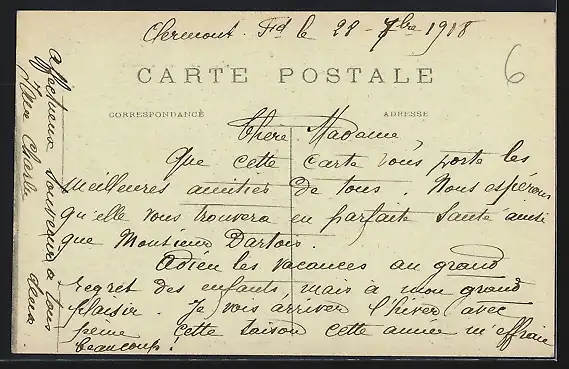 Clermont. Fd le 28-7bre 1918
6
CARTE POSTALE
CORRESPONDANCE
ADRESSE
Chère Madame
Que cette carte vous porte les
meilleures amitiés de tous. Nous espérons
qu'elle vous trouvera en parfaite santé ainsi
que Monsieur Dartois.
Adieu les vacances au grand
regret des enfants mais à mon grand
plaisir. Je vois arriver l'hiver avec
peine cette saison cette année m'effraie
beaucoup!
Affectueux souvenirs à tous
deux.